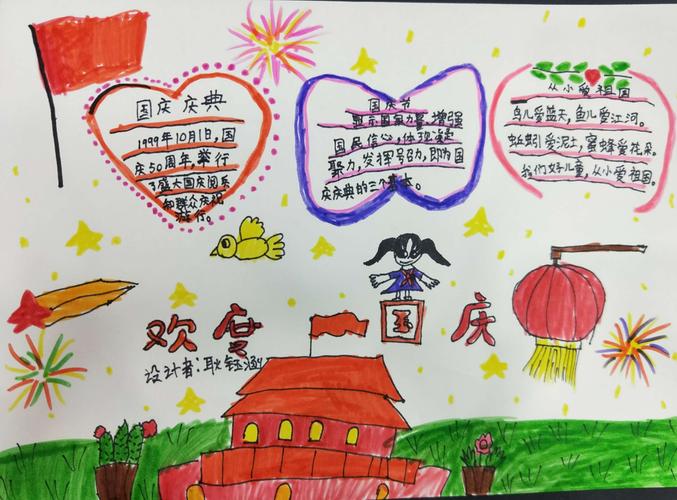 国庆庆典
1999年10月1日,国
庆50周年,举行
了盛大国庆阅兵
和群众庆祝
游行。
国庆节
显示国家力量,增强
国民信心,体现凝
聚力,发挥号召力,即为国
庆庆典的三个基本。
从小爱祖国
鸟儿爱蓝天,鱼儿爱江河。
蚯蚓爱泥土,蜜蜂爱花朵。
我们好儿童,从小爱祖国。
欢度国庆
设计者:耿钰涵